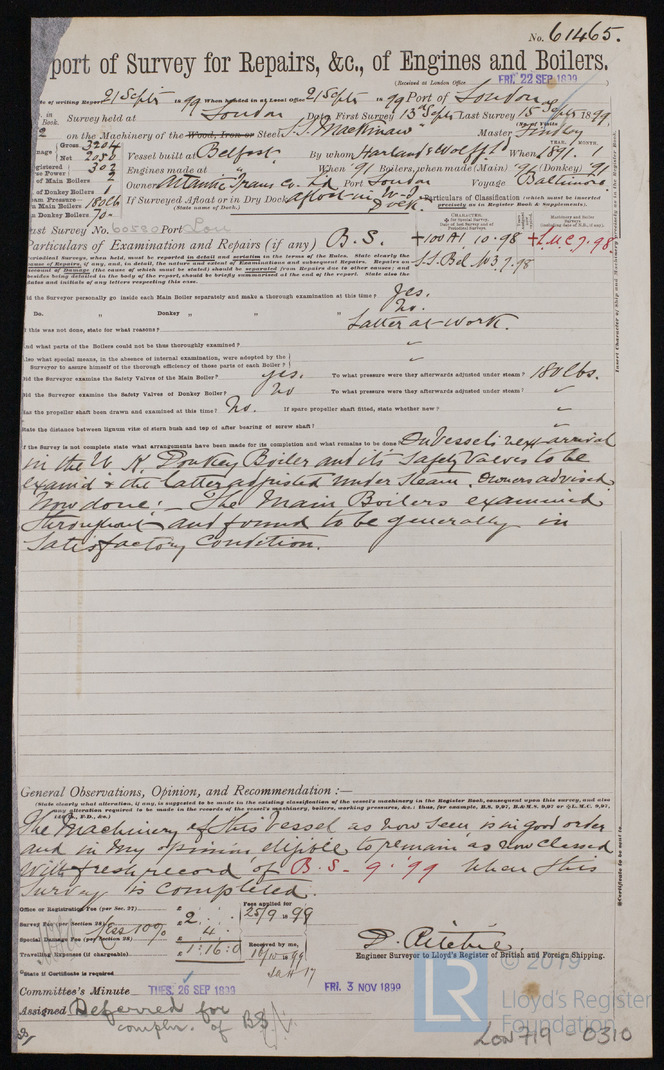 No. 61465.
port of Survey for Repairs, &c., of Engines and Boilers.
(Received at London Office FRI. 22 SEP 1899)
of writing Report 21 Septr 1899 When handed in at Local Office 21 Septr 1899 Port of London
in Book. Survey held at London Date, First Survey 13th Septr Last Survey 15 Septr 1899
(No. of Visits
2 on the Machinery of the Wood, Iron or Steel S.S. "Mackinaw" Master Findlay
Gross 3204
Net 2050 Vessel built at Belfast By whom Harland & Wolff Ld When 1891. 1
YEAR. MONTH.
Registered 302 Engines made at " When '91 Boilers, when made (Main) '91 (Donkey) '91
of Main Boilers 2 Owners Atlantic Trans Co. Ld Port London Voyage Baltimore
of Donkey Boilers 1
Main Boilers 180 lb If Surveyed Afloat or in Dry Dock Afloat in W.I. Dock.
(State name of Dock.)
Donkey Boilers 70
Particulars of Classification (which must be inserted
precisely as in Register Book & Supplements).
Last Survey No. 60580 Port Lon
Particulars of Examination and Repairs (if any) B.S.
+100A1 10.98 +L.M.C 7.98
S.S. Bel No 3 7.98
Did the Surveyor personally go inside each Main Boiler separately and make a thorough examination at this time? Yes.
Do. " Donkey " " " No.
If this was not done, state for what reasons? Latter at work.
And what parts of the Boilers could not be thus thoroughly examined? "
Also what special means, in the absence of internal examination, were adopted by the
Surveyor to assure himself of the thorough efficiency of those parts of each Boiler? "
Did the Surveyor examine the Safety Valves of the Main Boiler? yes. To what pressure were they afterwards adjusted under steam? 180 lbs.
Did the Surveyor examine the Safety Valves of Donkey Boiler? no To what pressure were they afterwards adjusted under steam? "
Has the propeller shaft been drawn and examined at this time? No. If spare propeller shaft fitted, state whether new? "
State the distance between lignum vitæ of stern bush and top of after bearing of screw shaft? "
If the Survey is not complete state what arrangements have been made for its completion and what remains to be done On Vessel's next arrival
in the U.K. Donkey Boiler and its Safety Valves to be
exam'd & the latter adjusted under Steam. Owners advised
Now done:- The Main Boilers examined
throughout and found to be generally in
Satisfactory Condition.
General Observations, Opinion, and Recommendation :—
(State clearly what alteration, if any, is suggested to be made in the existing classification of the vessel's machinery in the Register Book, consequent upon this survey, and also
any alteration required to be made in the records of the vessel's machinery, boilers, working pressures, &c.; thus, for example, B.S. 9,97, B.&M.S. 9,97 or L.M.C. 9,97,
The Machinery of this Vessel as now seen, is in good order
and in my opinion eligible to remain as now classed
with fresh record of B.S. 9.99 when this
Survey is completed.
Office or Registration Fee (per Sec. 27) £
Survey Fee (per Section 28) £ 2 . .
Less 10% 4 .
Special Damage Fee (per Section 28) £
Travelling Expenses (if chargeable) £ 1:16:0
Fees applied for 25/9 1899
Received by me, 16/10 1899
D. Ritchie
Engineer Surveyor to Lloyd's Register of British and Foreign Shipping.
State if Certificate is required
Committee's Minute TUES. 26 SEP 1899 FRI. 3 NOV 1899
Assigned Deferred for
compln. of BS
© 2019
LR
Lloyd's Register
Foundation
LON 719 - 0310